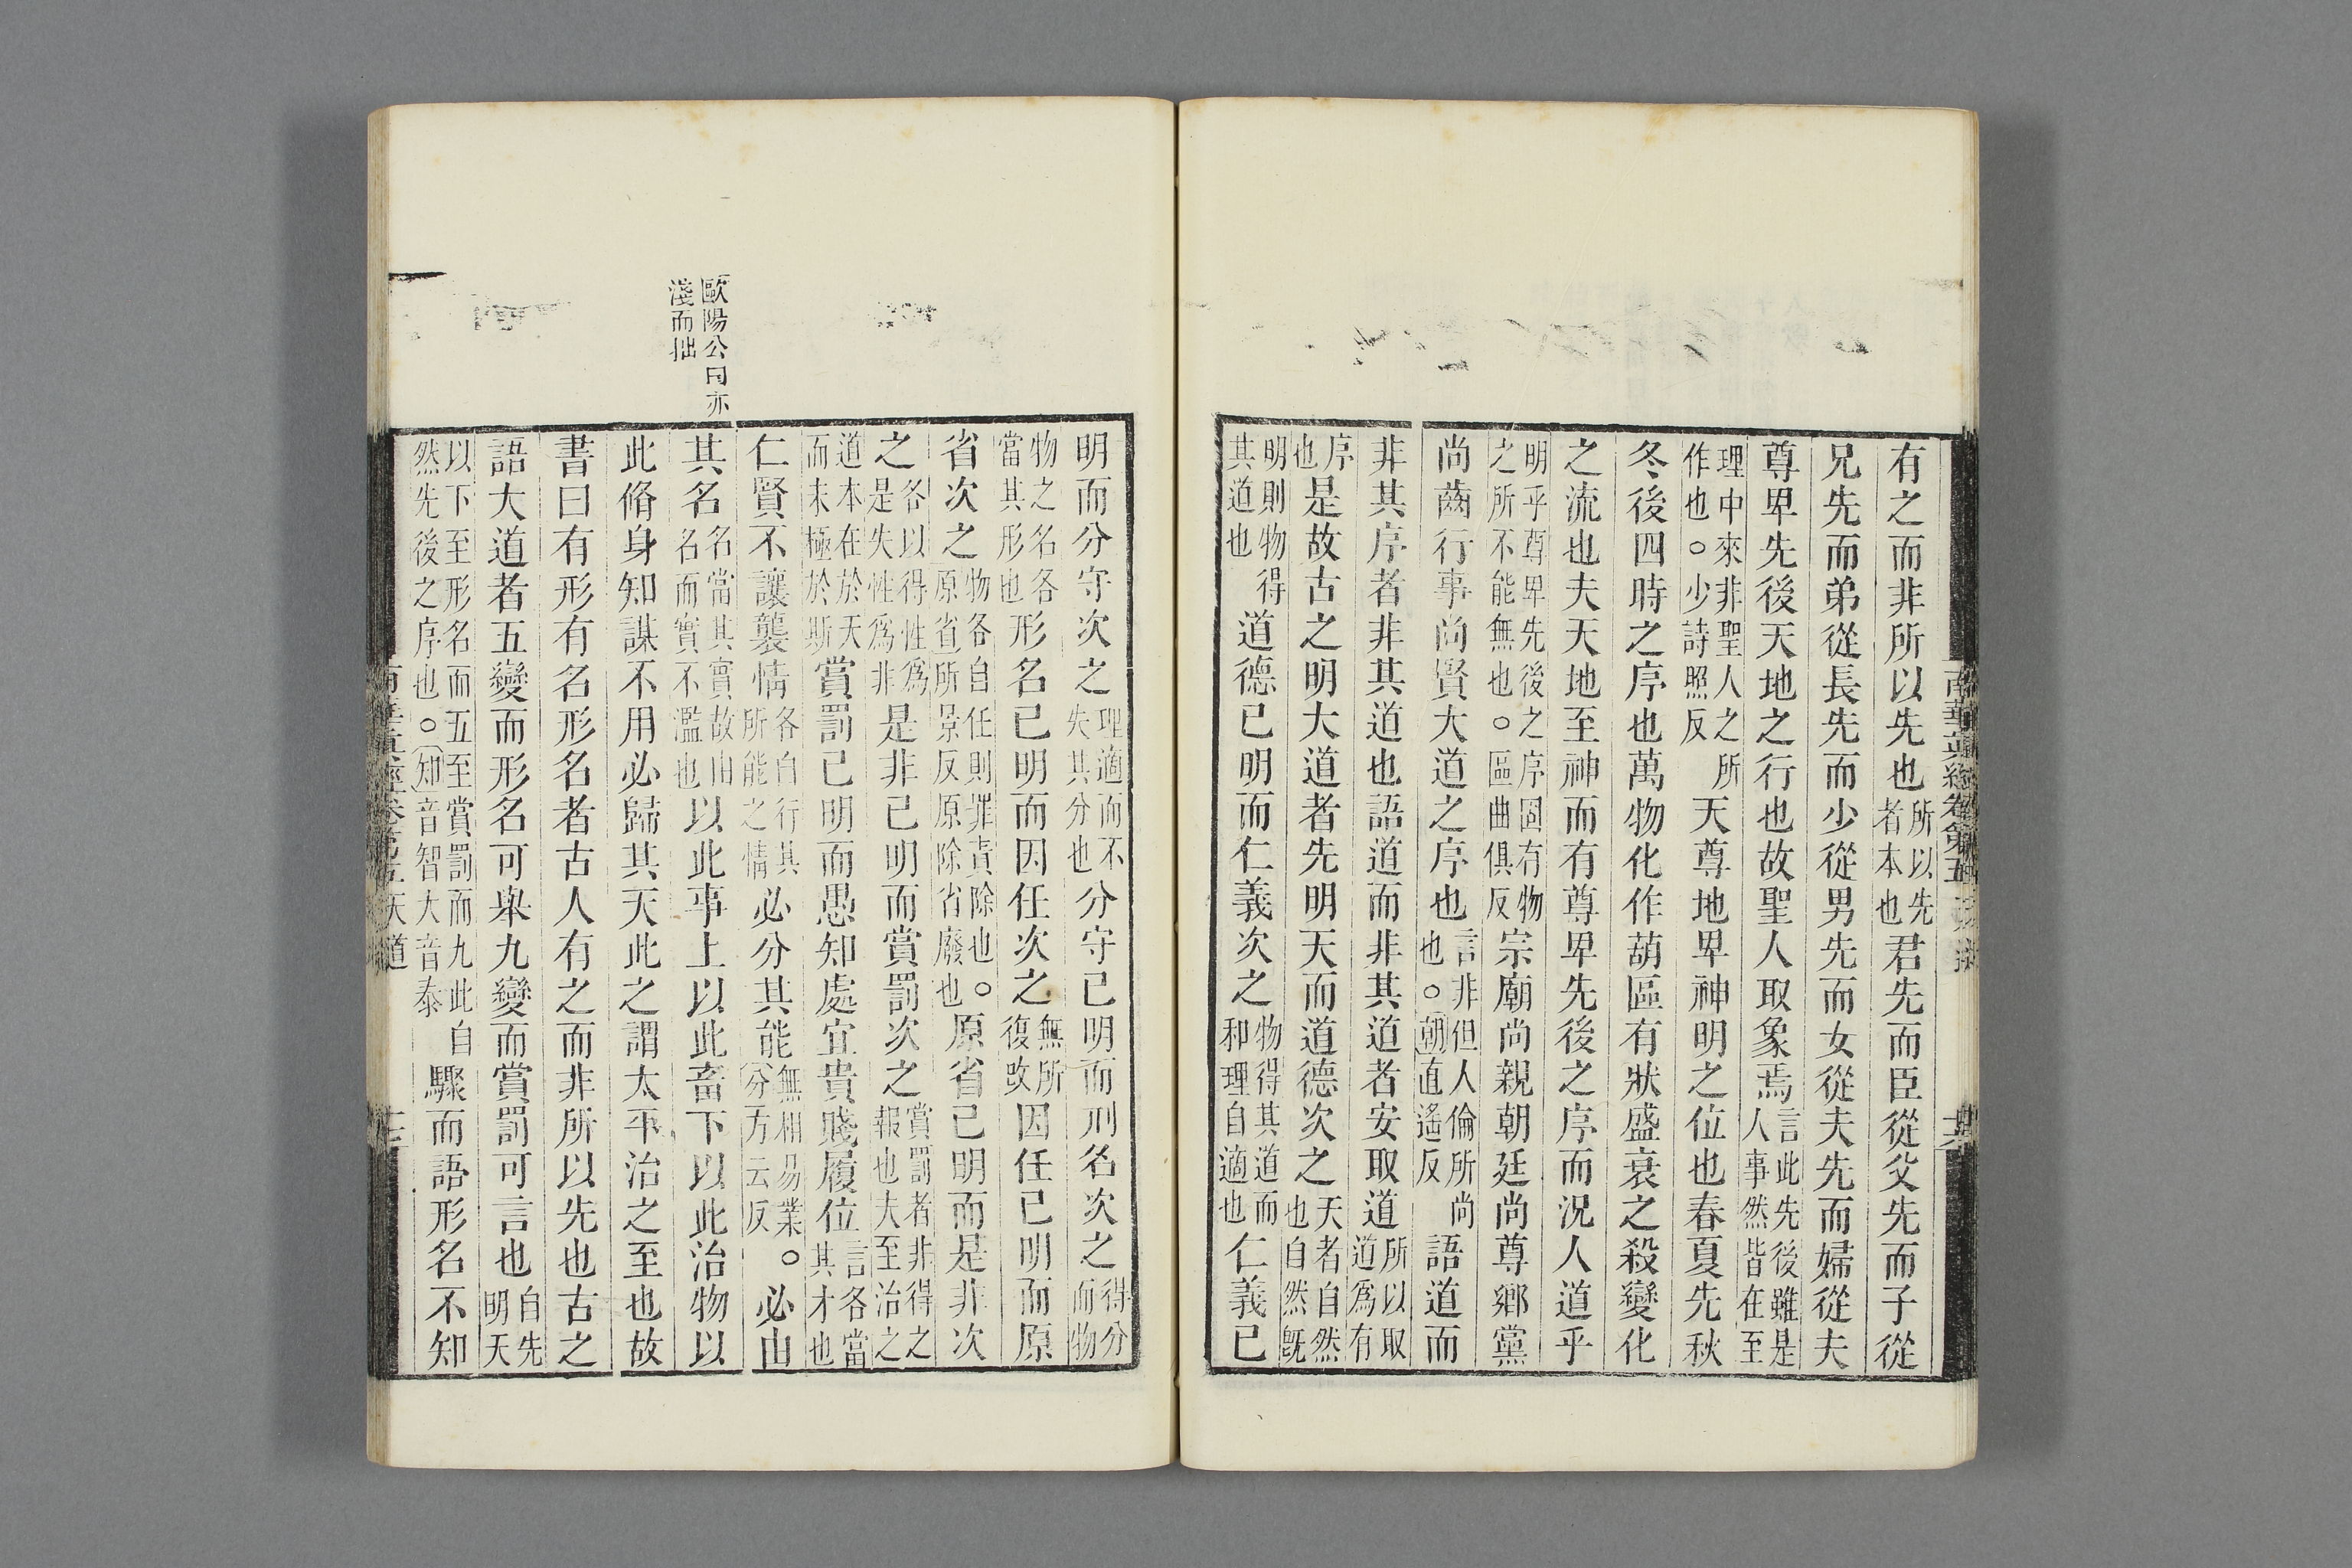 有之而非所以先也所以先者本也君先而臣從父先而子從
兄先而弟從長先而少從男先而女從夫先而婦從夫
尊卑先後天地之行也故聖人取象焉言此先後雖是人事然皆在至
理中來非聖人之所作也○少詩照反天尊地卑神明之位也春夏先秋
冬後四時之序也萬物化作萌區有狀盛衰之殺變化
之流也夫天地至神而有尊卑先後之序而況人道乎
明乎尊卑先後之序固有物之所不能無也○區曲俱反宗廟尚親朝廷尚尊鄉黨
尚齒行事尚賢大道之序也言非但人倫所尚也○朝直遙反語道而
非其序者非其道也語道而非其道者安取道所以取道爲有
序也是故古之明大道者先明天而道德次之天者自然也自然既
明則物得其道也道德已明而仁義次之物得其道而和理自適也仁義已
明而分守次之理適而不失其分也分守已明而刑名次之得分而物
物之名各當其形也形名已明而因任次之無所復改因任已明而原
省次之物各自任則罪責除也○原省所景反原除省廢也原省已明而是非次
之各以得性爲是失性爲非是非已明而賞罰次之賞罰者非得之報也夫至治之
道本在於天而末極於斯賞罰已明而愚知處宜貴賤履位言各當其才也
仁賢不讓襲情各自行其所能之情必分其能無相易業○分方云反必由
其名名當其實故由名而實不濫也以此事上以此畜下以此治物以
此脩身知謀不用必歸其天此之謂太平治之至也故
書曰有形有名形名者古人有之而非所以先也古之
語大道者五變而形名可舉九變而賞罰可言也自先明天
以下至形名而五至賞罰而九此自然先後之序也○知音智大音泰驟而語形名不知
歐陽公曰亦
淺而拙
南華真經卷第五